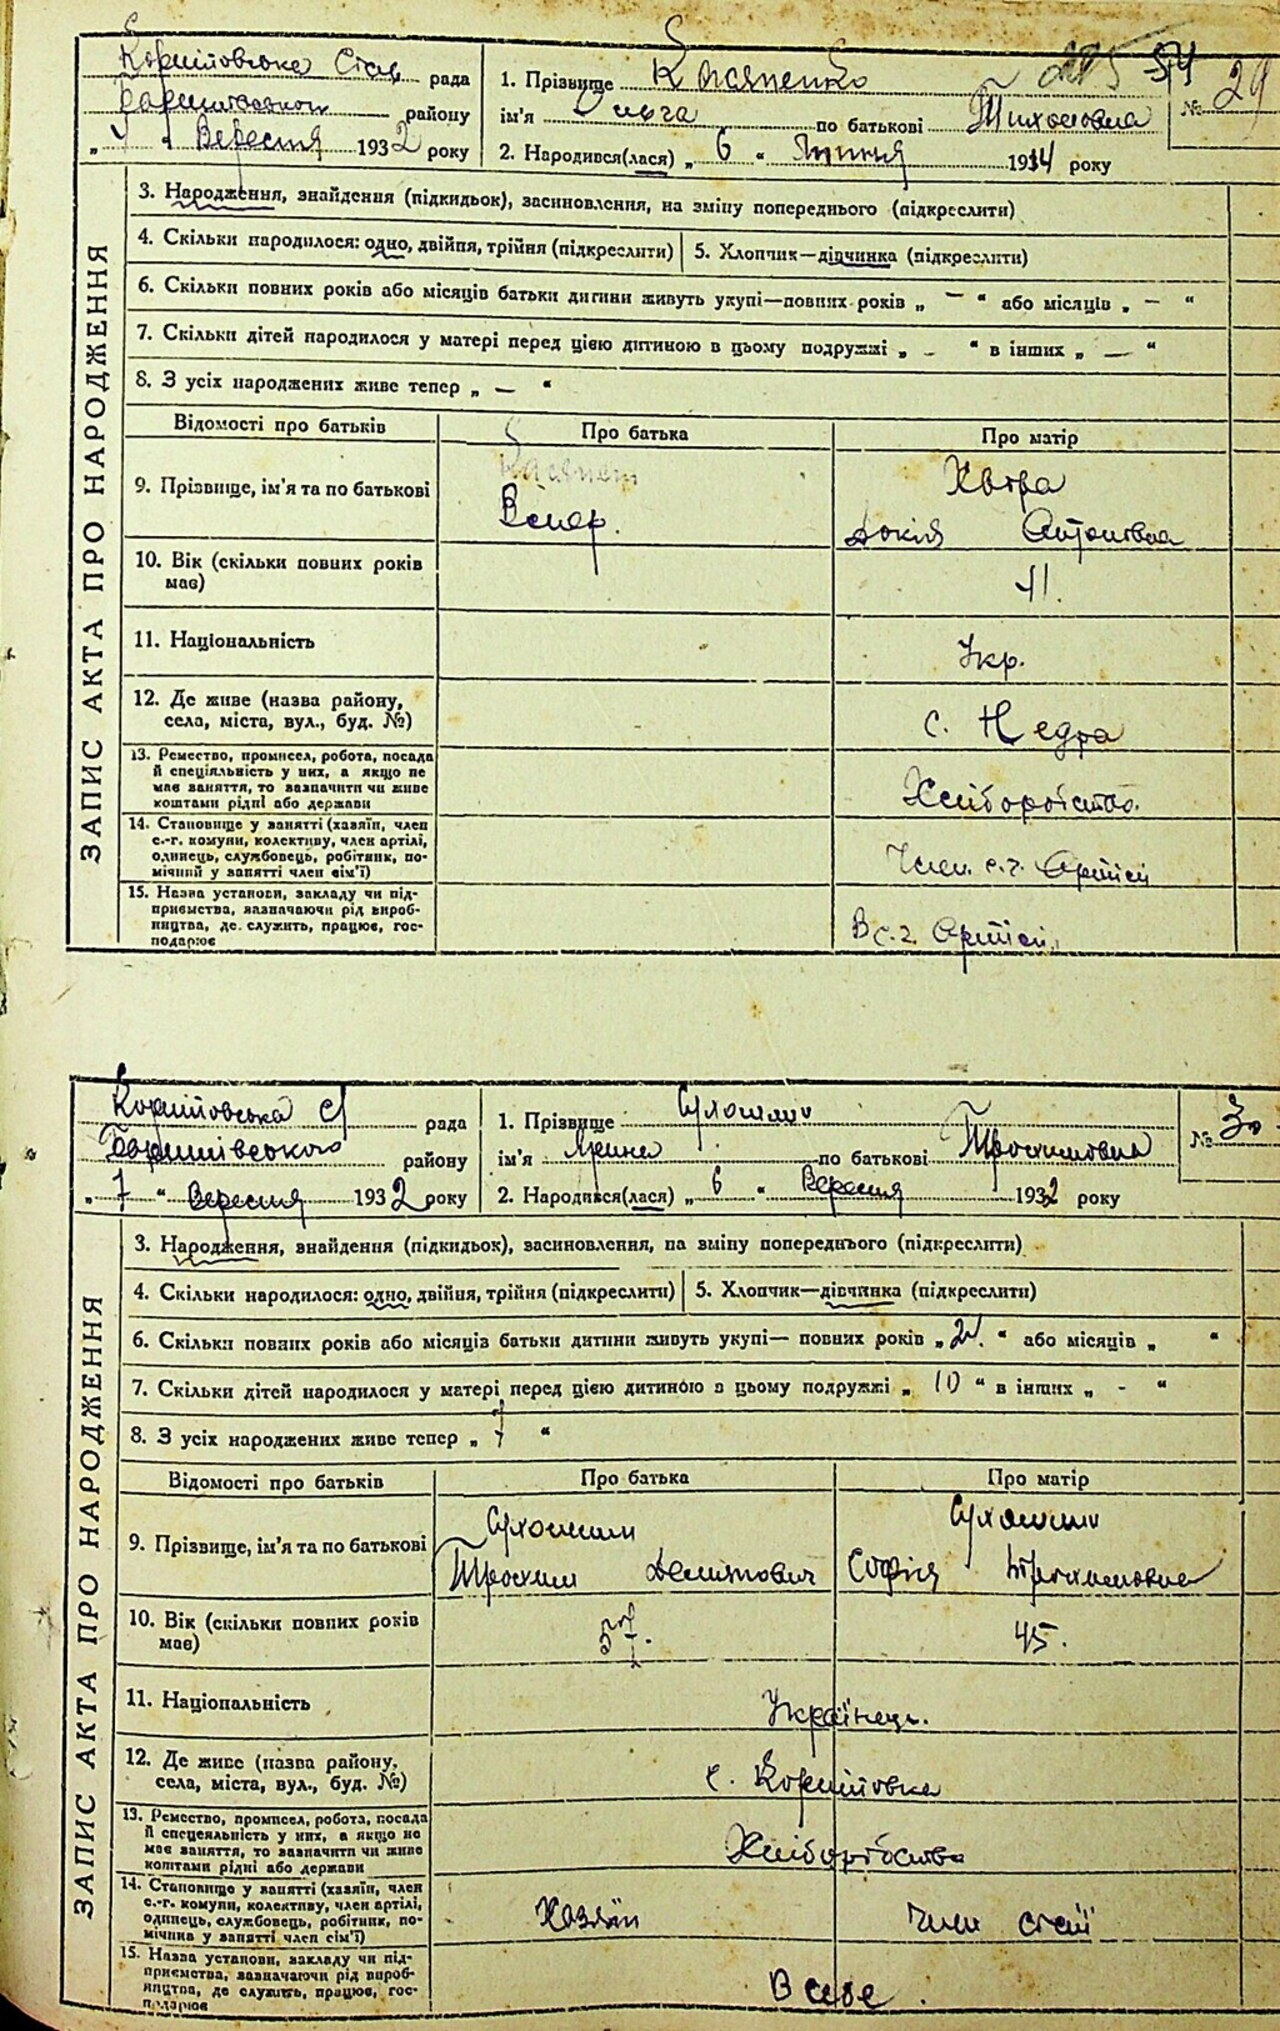 рада
1. Прізвище
54
району
ім'я Ольга по батькові Тихоновна
№ 29
Вересня 1932 року
2. Народився(лася) „ 6 “ Липня 1914 року
ЗАПИС АКТА ПРО НАРОДЖЕННЯ
3. Народження, знайдення (підкидьок), засиновлення, на зміну попереднього (підкреслити)
4. Скільки народилося: одно, двійня, трійня (підкреслити)
5. Хлопчик—дівчинка (підкреслити)
6. Скільки повних років або місяців батьки дитини живуть укупі—повних років „ — “ або місяців „ — “
7. Скільки дітей народилося у матері перед цією дитиною в цьому подружжі „ – “ в інших „ — “
8. З усіх народжених живе тепер „ — “
Відомості про батьків
Про батька
Про матір
9. Прізвище, ім'я та по батькові
Вмер.
Хвтра
Докія Антонівна
10. Вік (скільки повних років
має)
41.
11. Національність
Укр.
12. Де живе (назва району,
села, міста, вул., буд. №)
с. Недра
13. Ремество, промисел, робота, посада
й спеціяльність у них, а якщо не
має заняття, то зазначити чи живе
коштами рідні або держави
Хліборобство.
14. Становище у занятті (хазяїн, член
с.-г. комуни, колективу, член артілі,
одинець, службовець, робітник, по-
мічний у занятті член сім'ї)
Член. с.г. Артілі
15. Назва установи, закладу чи під-
приємства, зазначаючи рід вироб-
ництва, де служить, працює, гос-
подарює
В с.г. Артілі.
рада
1. Прізвище
№ 30
Баришівського району
ім'я Ярина по батькові Трохимовна
„ 7 “ Вересня 1932 року
2. Народився(лася) „ 6 “ Вересня 1932 року
ЗАПИС АКТА ПРО НАРОДЖЕННЯ
3. Народження, знайдення (підкидьок), засиновлення, на зміну попереднього (підкреслити)
4. Скільки народилося: одно, двійня, трійня (підкреслити)
5. Хлопчик—дівчинка (підкреслити)
6. Скільки повних років або місяців батьки дитини живуть укупі— повних років „ “ або місяців „ “
7. Скільки дітей народилося у матері перед цією дитиною в цьому подружжі „ “ в інших „ - “
8. З усіх народжених живе тепер „ 7 “
Відомості про батьків
Про батька
Про матір
9. Прізвище, ім'я та по батькові
Трохим Демянович
Софія Трохимовна
10. Вік (скільки повних років
має)
57.
45.
11. Національність
Українець.
12. Де живе (назва району,
села, міста, вул., буд. №)
13. Ремество, промисел, робота, посада
й спецеяльність у них, а якщо не
має заняття, то зазначити чи живе
коштами рідні або держави
Хліборобство
14. Становище у занятті (хазяїн, член
с.-г. комуни, колективу, член артілі,
одинець, службовець, робітник, по-
мічник у занятті член сім'ї)
Хазяїн
член сімї
15. Назва установи, закладу чи під-
приємства, зазначаючи рід вироб-
ництва, де служить, працює, гос-
подарює
В себе.